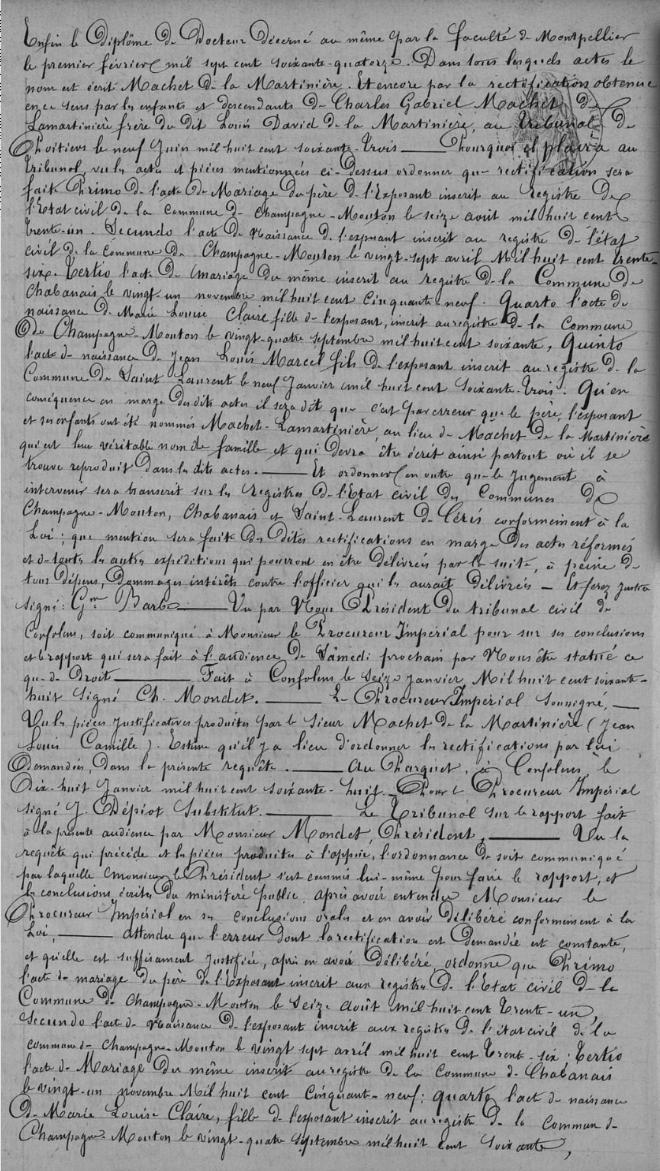 Enfin le Diplôme de Docteur décerné au même par la faculté de Montpellier
le premier février mil sept cent soixante-quatorze. Dans tous lesquels actes le
nom est écrit Machet de la Martinière. Et encore par la rectification obtenue
en ce sens par les enfants et descendants de Charles Gabriel Machet de
Lamartinière frère du dit Louis David de la Martinière, au tribunal de
Poitiers le neuf Juin mil huit cent soixante-trois — Pourquoi il plaira au
tribunal, vu les actes et pièces mentionnées ci-dessus ordonner que rectification sera
fait Primo de l'acte de Mariage du père de l'Exposant inscrit au registre de
l'Etat civil de la Commune de Champagne-Mouton le seize août mil huit cent
trente-un. Secundo l'acte de Naissance de l'exposant inscrit au registre de l'état
civil de la commune de Champagne-Mouton le vingt-sept avril Mil huit cent trente-
six. Tertio l'acte de Mariage du même inscrit au registre de la Commune de
Chabanais le vingt-un novembre mil huit cent Cinquante-neuf. Quarto l'acte de
naissance de Marie Louise Claire fille de l'exposant, inscrit au registre de la commune
de Champagne-Mouton le vingt-quatre septembre mil huit cent soixante, Quinto
l'acte de naissance de Jean Louis Marcel fils de l'exposant inscrit au registre de la
Commune de Saint-Laurent le neuf Janvier mil huit cent soixante-trois. Qu'en
conséquence en marge des dits actes il sera dit que c'est par erreur que le père, l'exposant
et ses enfants ont été nommés Machet-Lamartinière, au lieu de Machet de la Martinière
qui est leur véritable nom de famille et qui devra être écrit ainsi partout où il se
trouve reproduit dans les dits actes. — Et ordonner en outre que le Jugement à
intervenir sera transcrit sur les registres de l'Etat civil des Communes de
Champagne-Mouton, Chabanais et Saint-Laurent de Céris conformément à la
Loi; que mention sera faite des dites rectifications en marge des actes réformés
et de toutes les autres expéditions qui pourront en être délivrées par la suite, à peine de
tous dépens, dommages intérêts contre l'officier qui les aurait délivrées — Et ferez justice
signé: Barbe — Vu par Nous Président du tribunal civil de
Confolens, soit communiqué à Monsieur le Procureur Impérial pour sur ses conclusions
et le rapport qui sera fait à l'audience de Samedi prochain par Nous être statué ce
que de Droit — Fait à Confolens le Seize janvier, Mil huit cent soixante-
huit Signé Ch. Mondet. — Le Procureur Impérial soussigné, —
Vu les pièces justificatives produites par le Sieur Machet de la Martinière (Jean
Louis Camille). Estime qu'il y a lieu d'ordonner les rectifications par lui
demandées, dans la présente requête. — Au Parquet, à Confolens, le
Dix-huit Janvier mil huit cent soixante-huit. Pour le Procureur Impérial
signé J. Dépiot Substitut. — Le Tribunal sur le rapport fait
à la présente audience par Monsieur Mondet, Président, — Vu la
requête qui précède et les pièces produites à l'appui, l'ordonnance de soit communiqué
par laquelle Monsieur le Président s'est commis lui-même pour faire le rapport, et
les conclusions écrites du ministère public, après avoir entendu Monsieur le
Procureur Impérial en ses conclusions orales et en avoir délibéré conformément à la
Loi, — attendu que l'erreur dont la rectification est demandée est constante,
et qu'elle est suffisamment justifiée, après en avoir délibéré, ordonne que Primo
l'acte de mariage du père de l'Exposant inscrit aux registres de l'Etat civil de la
Commune de Champagne-Mouton le Seize août mil huit cent trente-un,
Secundo l'acte de Naissance de l'exposant inscrit aux registres de l'état civil de la
commune de Champagne-Mouton le vingt sept avril mil huit cent trente-six; Tertio
l'acte de Mariage du même inscrit au registre de la Commune de Chabanais
le vingt-un novembre Mil huit cent Cinquante-neuf; quarto l'acte de naissance
de Marie Louise Claire, fille de l'exposant inscrit au registre de la commune de
Champagne-Mouton le vingt-quatre septembre mil huit cent soixante,